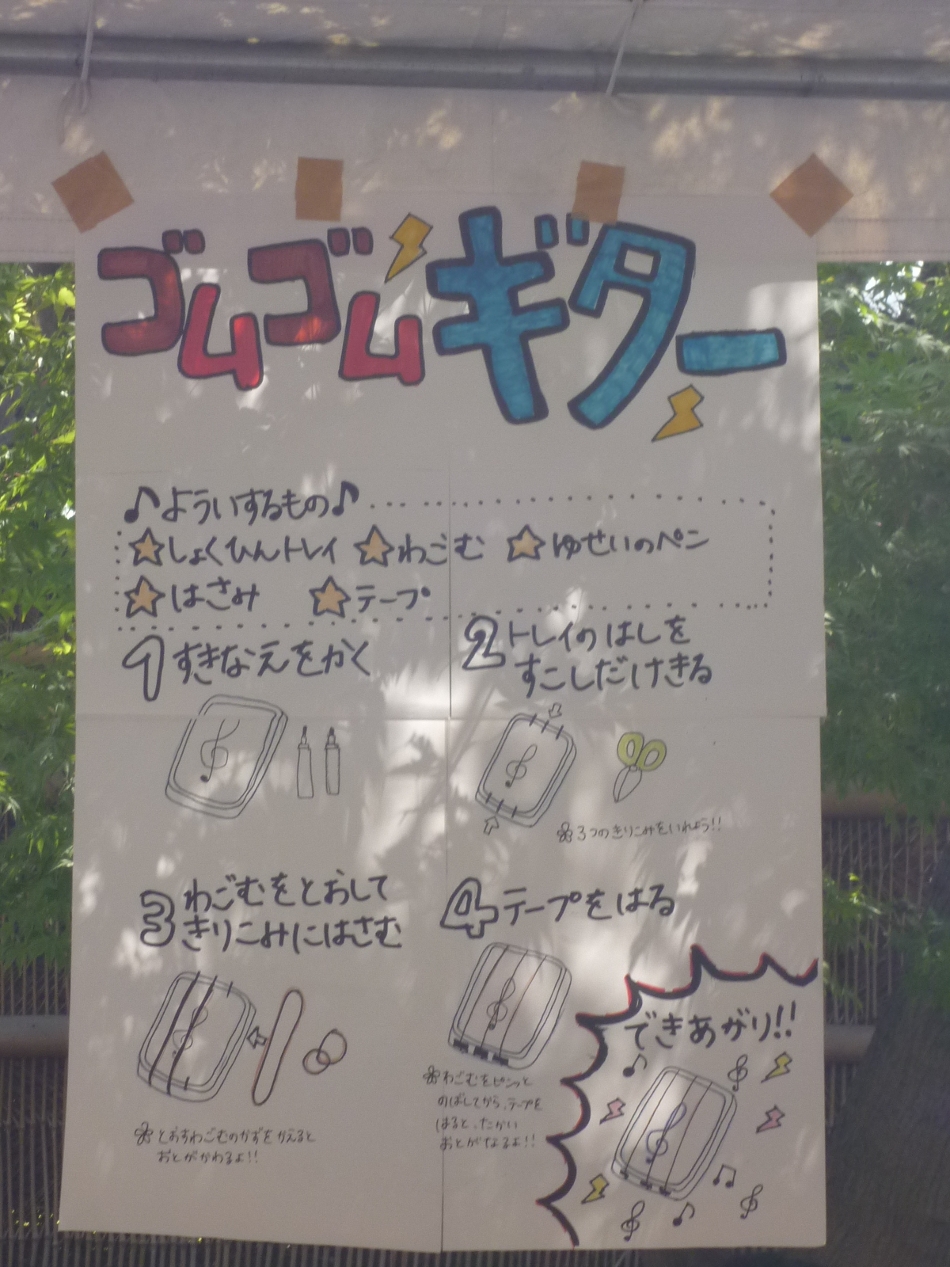 ゴムゴムギター
♪よういするもの♪
☆しょくひんトレイ ☆わごむ ☆ゆせいのペン
☆はさみ ☆テープ
1 すきなえをかく
2 トレイのはしを
すこしだけきる
3つのきりこみをいれよう!!
3 わごむをとおして
きりこみにはさむ
とおすわごむのかずをかえると
おとがかわるよ!!
4 テープをはる
わごむをピンッと
のばしてから、テープを
はると、たかい
おとがなるよ!!
できあがり!!